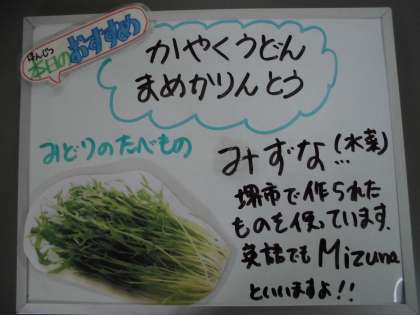 ほんじつ
本日のおすすめ
かやくうどん
まめかりんとう
みどりのたべもの
みずな(水菜)
…
堺市で作られた
ものを使っています。
英語でもMizuna
といいますよ!!